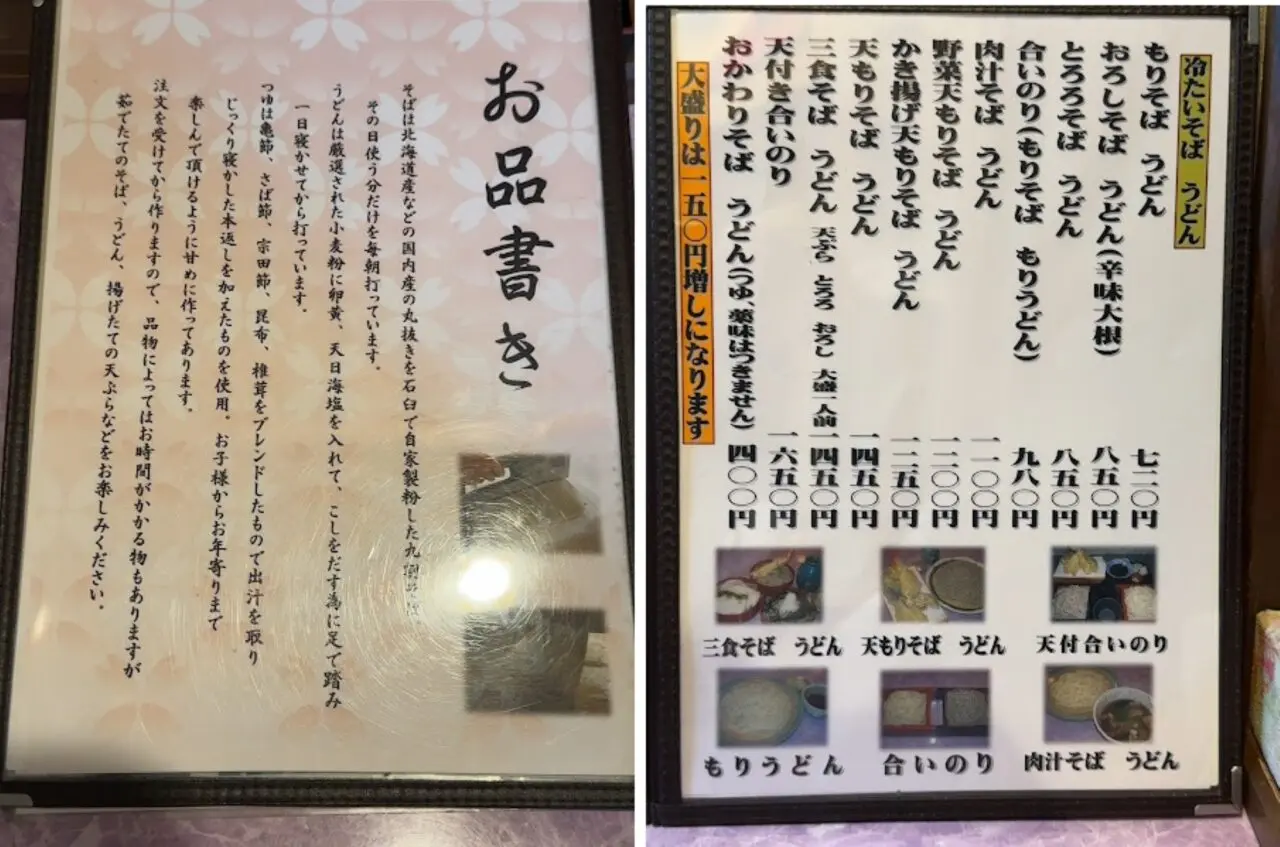 お品書き
そばは北海道産などの国内産の丸抜きを石臼で自家製粉した九割
その日使う分だけを毎朝打っています。
うどんは厳選された小麦粉に卵黄、天日海塩を入れて、こしをだす為に足で踏み
一日寝かせてから打っています。
つゆは亀節、さば節、宗田節、昆布、椎茸をブレンドしたもので出汁を取り
じっくり寝かした本返しを加えたものを使用。お子様からお年寄りまで
楽しんで頂けるように甘めに作ってあります。
注文を受けてから作りますので、品物によってはお時間がかかる物もありますが
茹でたてのそば、うどん、揚げたての天ぷらなどをお楽しみください。
冷たいそば うどん
もりそば うどん 七二〇円
おろしそば うどん(辛味大根) 八五〇円
とろろそば うどん 八五〇円
合いのり(もりそば もりうどん) 九八〇円
肉汁そば うどん 一一〇〇円
野菜天もりそば うどん 一二〇〇円
かき揚げ天もりそば うどん 一二五〇円
天もりそば うどん 一四五〇円
三食そば うどん 天ぷら とろろ おろし 大盛一人前 一四五〇円
天付き合いのり 一六五〇円
おかわりそば うどん(つゆ、薬味はつきません) 四〇〇円
大盛りは一五〇円増しになります
三食そば うどん
天もりそば うどん
天付合いのり
もりうどん
合いのり
肉汁そば うどん